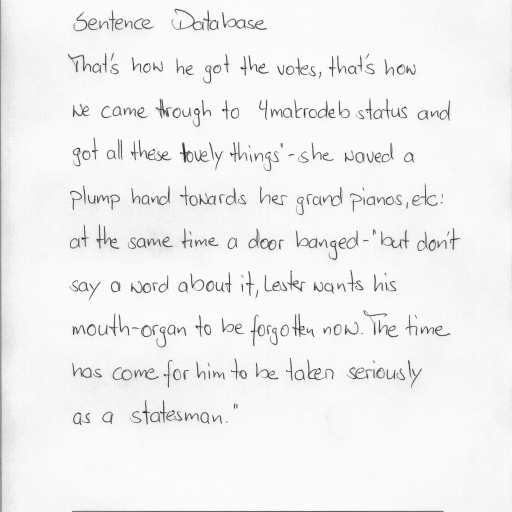 Sentence Database
That's how he got the votes, that's how
we came trough to 4makrodeb status and
got all these lovely things" - she waved a
plump hand towards her grand pianos, etc:
at the same time a door banged - "but don't
say a word about it, Lester wants his
mouth-organ to be forgotten now. The time
has come for him to be taken seriously
as a statesman."